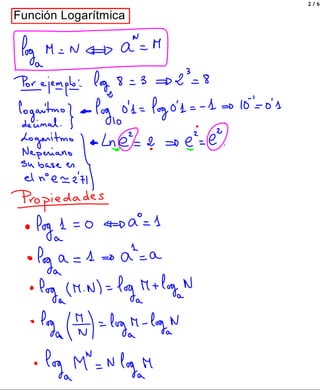 2 / 6
Función Logarítmica
log_a M = N ⇔ a^N = M
Por ejemplo: log_2 8 = 3 ⇒ 2^3 = 8
Logaritmo decimal. } ← log_10 0'1 = log 0'1 = -1 ⇒ 10^-1 = 0'1
Logaritmo Neperiano Su base es el nº e ≃ 2'71 } ← Ln e^2 = 2 ⇒ e^2 = e^2.
Propiedades
• log_a 1 = 0 ⇔ a^0 = 1
• log_a a = 1 ⇒ a^1 = a
• log_a (M·N) = log_a M + log_a N
• log_a (M/N) = log_a M - log_a N
• log_a M^N = N log_a M